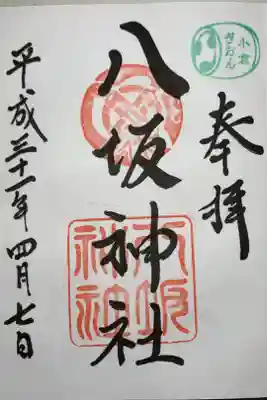 奉拝
小倉
ぎおん
八坂神社
八坂
神社
平成三十一年四月七日